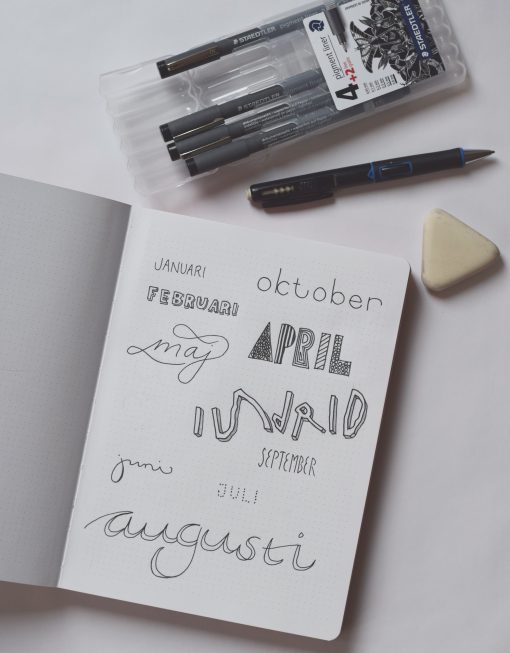 STAEDTLER
pigment liner
4+2
STAEDTLER
STAEDTLER
JANUARI
oktober
FEBRUARI
maj
APRIL
SEPTEMBER
juni
JULI
augusti